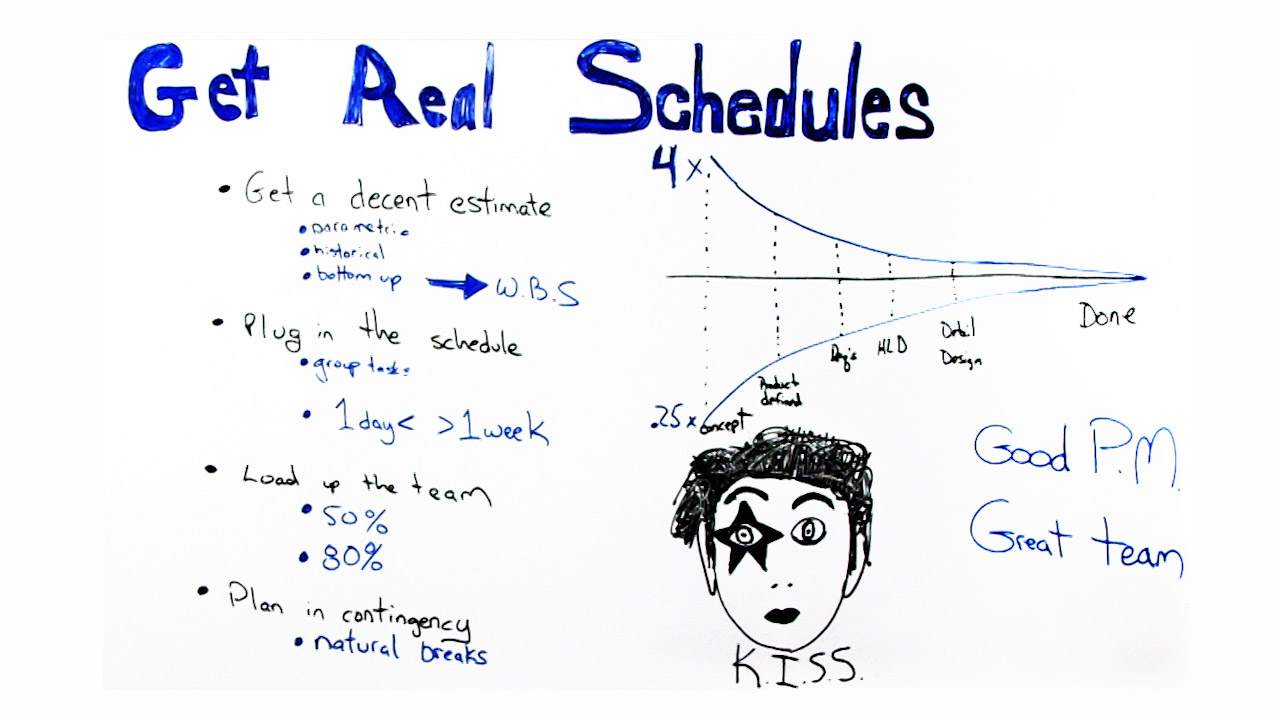 Get Real Schedules
• Get a decent estimate
• parametric
• historical
• bottom up → W.B.S
• Plug in the schedule
• group tasks
• 1 day < > 1 week
• Load up the team
• 50%
• 80%
• Plan in contingency
• natural breaks
4x
.25x
concept
Product
defined
Req's
HLD
Detail
Design
Done
K.I.S.S.
Good P.M.
Great team